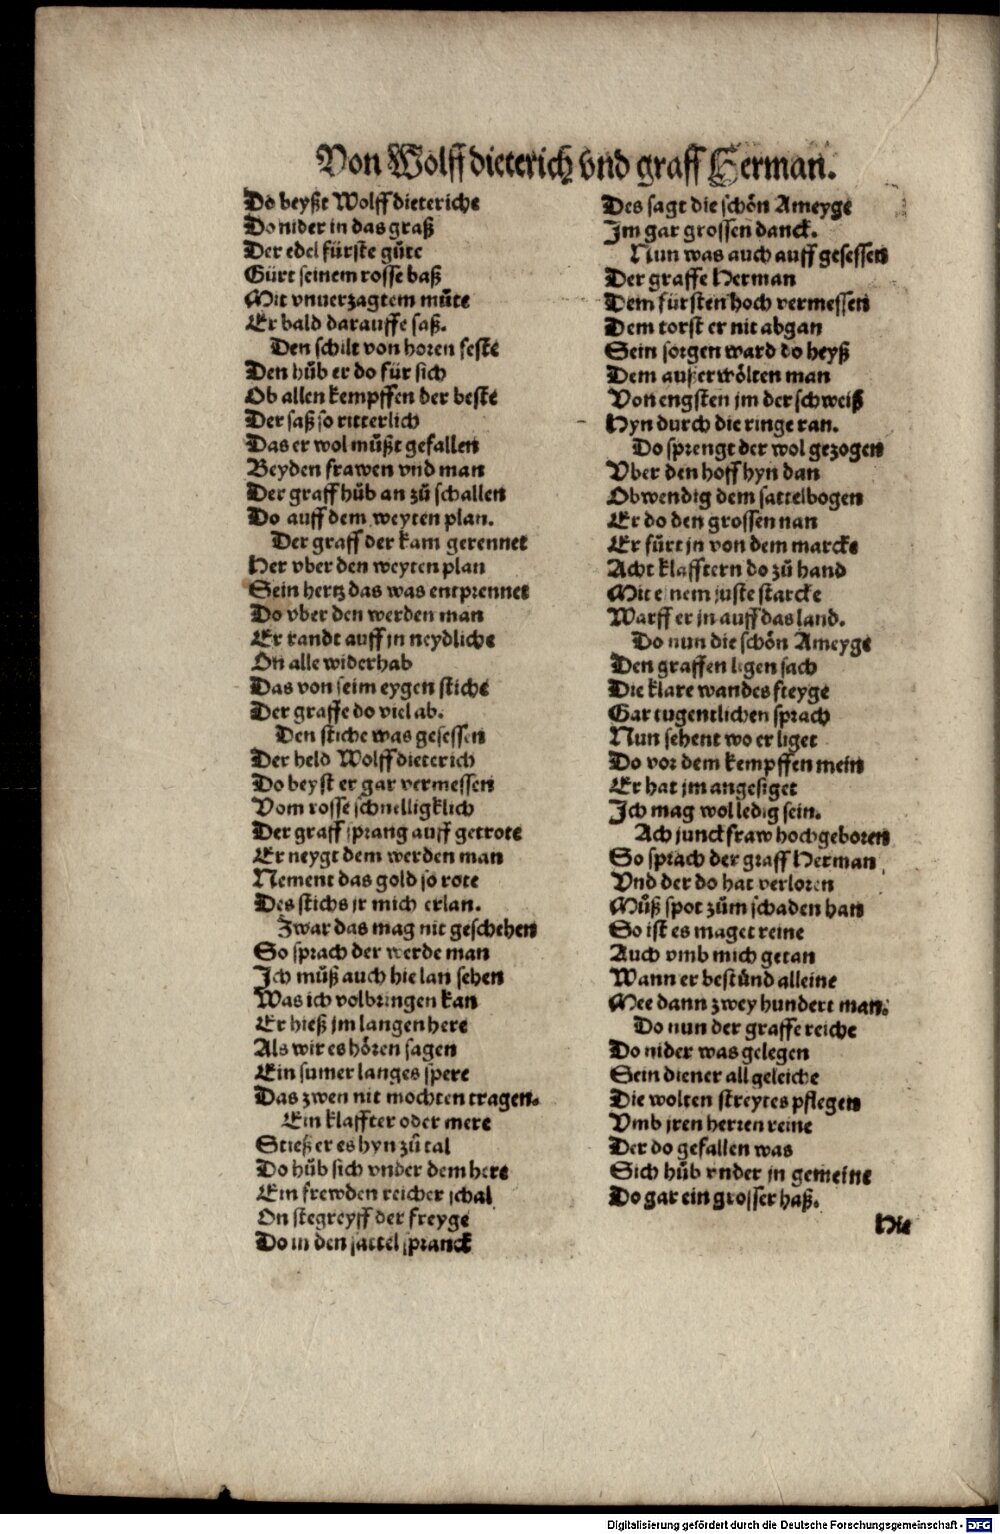 Von Wolff dieterich vnd graff Herman.
Do beyßt Wolff dieteriche
Do nider in das graß
Der edel fürste güte
Gürt seinem rosse baß
Mit vnuerzagtem müte
Er bald darauffe saß.
Den schilt von horen feste
Den hüb er do für sich
Ob allen kempffen der beste
Der saß so ritterlich
Das er wol müßt gefallen
Beyden frawen vnd man
Der graff hüb an zü schallen
Do auff dem weyten plan.
Der graff der kam gerennet
Her vber den weyten plan
Sein hertz das was entprennet
Do vber den werden man
Er randt auff in neydliche
On alle widerhab
Das von seim eygen stiche
Der graffe do viel ab.
Den stiche was gesessen
Der held Wolff dieterich
Do beyst er gar vermessen
Vom rosse schnelligklich
Der graff sprang auff getrote
Er neygt dem werden man
Nement das gold so rote
Des stichs jr mich erlan.
Zwar das mag nit geschehen
So sprach der werde man
Ich müß auch hie lan sehen
Was ich volbringen kan
Er hieß jm langen here
Als wir es hören sagen
Ein sumer langes spere
Das zwen nit mochten tragen.
Ein klaffter oder mere
Stieß er es hyn zü tal
Do hüb sich vnder dem here
Ein frewden reicher schal
On stegreyff der freyge
Do in den sattel spranck
Des sagt die schön Ameyge
Jm gar grossen danck.
Nun was auch auff gesessen
Der graffe Herman
Dem fürsten hoch vermessen
Dem torst er nit abgan
Sein sorgen ward do heyß
Dem außerwölten man
Von engsten jm der schweiß
Hyn durch die ringe ran.
Do sprengt der wol gezogen
Vber den hoff hyn dan
Obwendig dem sattelbogen
Er do den grossen nan
Er fürt jn von dem marcke
Acht klafftern do zü hand
Mit einem juste starcke
Warff er jn auff das land.
Do nun die schön Ameyge
Den graffen ligen sach
Die klare wandes freyge
Gar tugentlichen sprach
Nun sehent wo er liget
Do vor dem kempffen mein
Er hat jm angesiget
Ich mag wol ledig sein.
Ach junckfraw hochgeboren
So sprach der graff Herman
Vnd der do hat verloren
Müß spot züm schaden han
So ist es maget reine
Auch vmb mich getan
Wann er bestünd alleine
Mee dann zwey hundert man.
Do nun der graffe reiche
Do nider was gelegen
Sein diener all geleiche
Die wolten streytes pflegen
Vmb jren herren reine
Der do gefallen was
Sich hüb vnder jn gemeine
Do gar ein grosser haß.
Hie
Digitalisierung gefördert durch die Deutsche Forschungsgemeinschaft - DFG